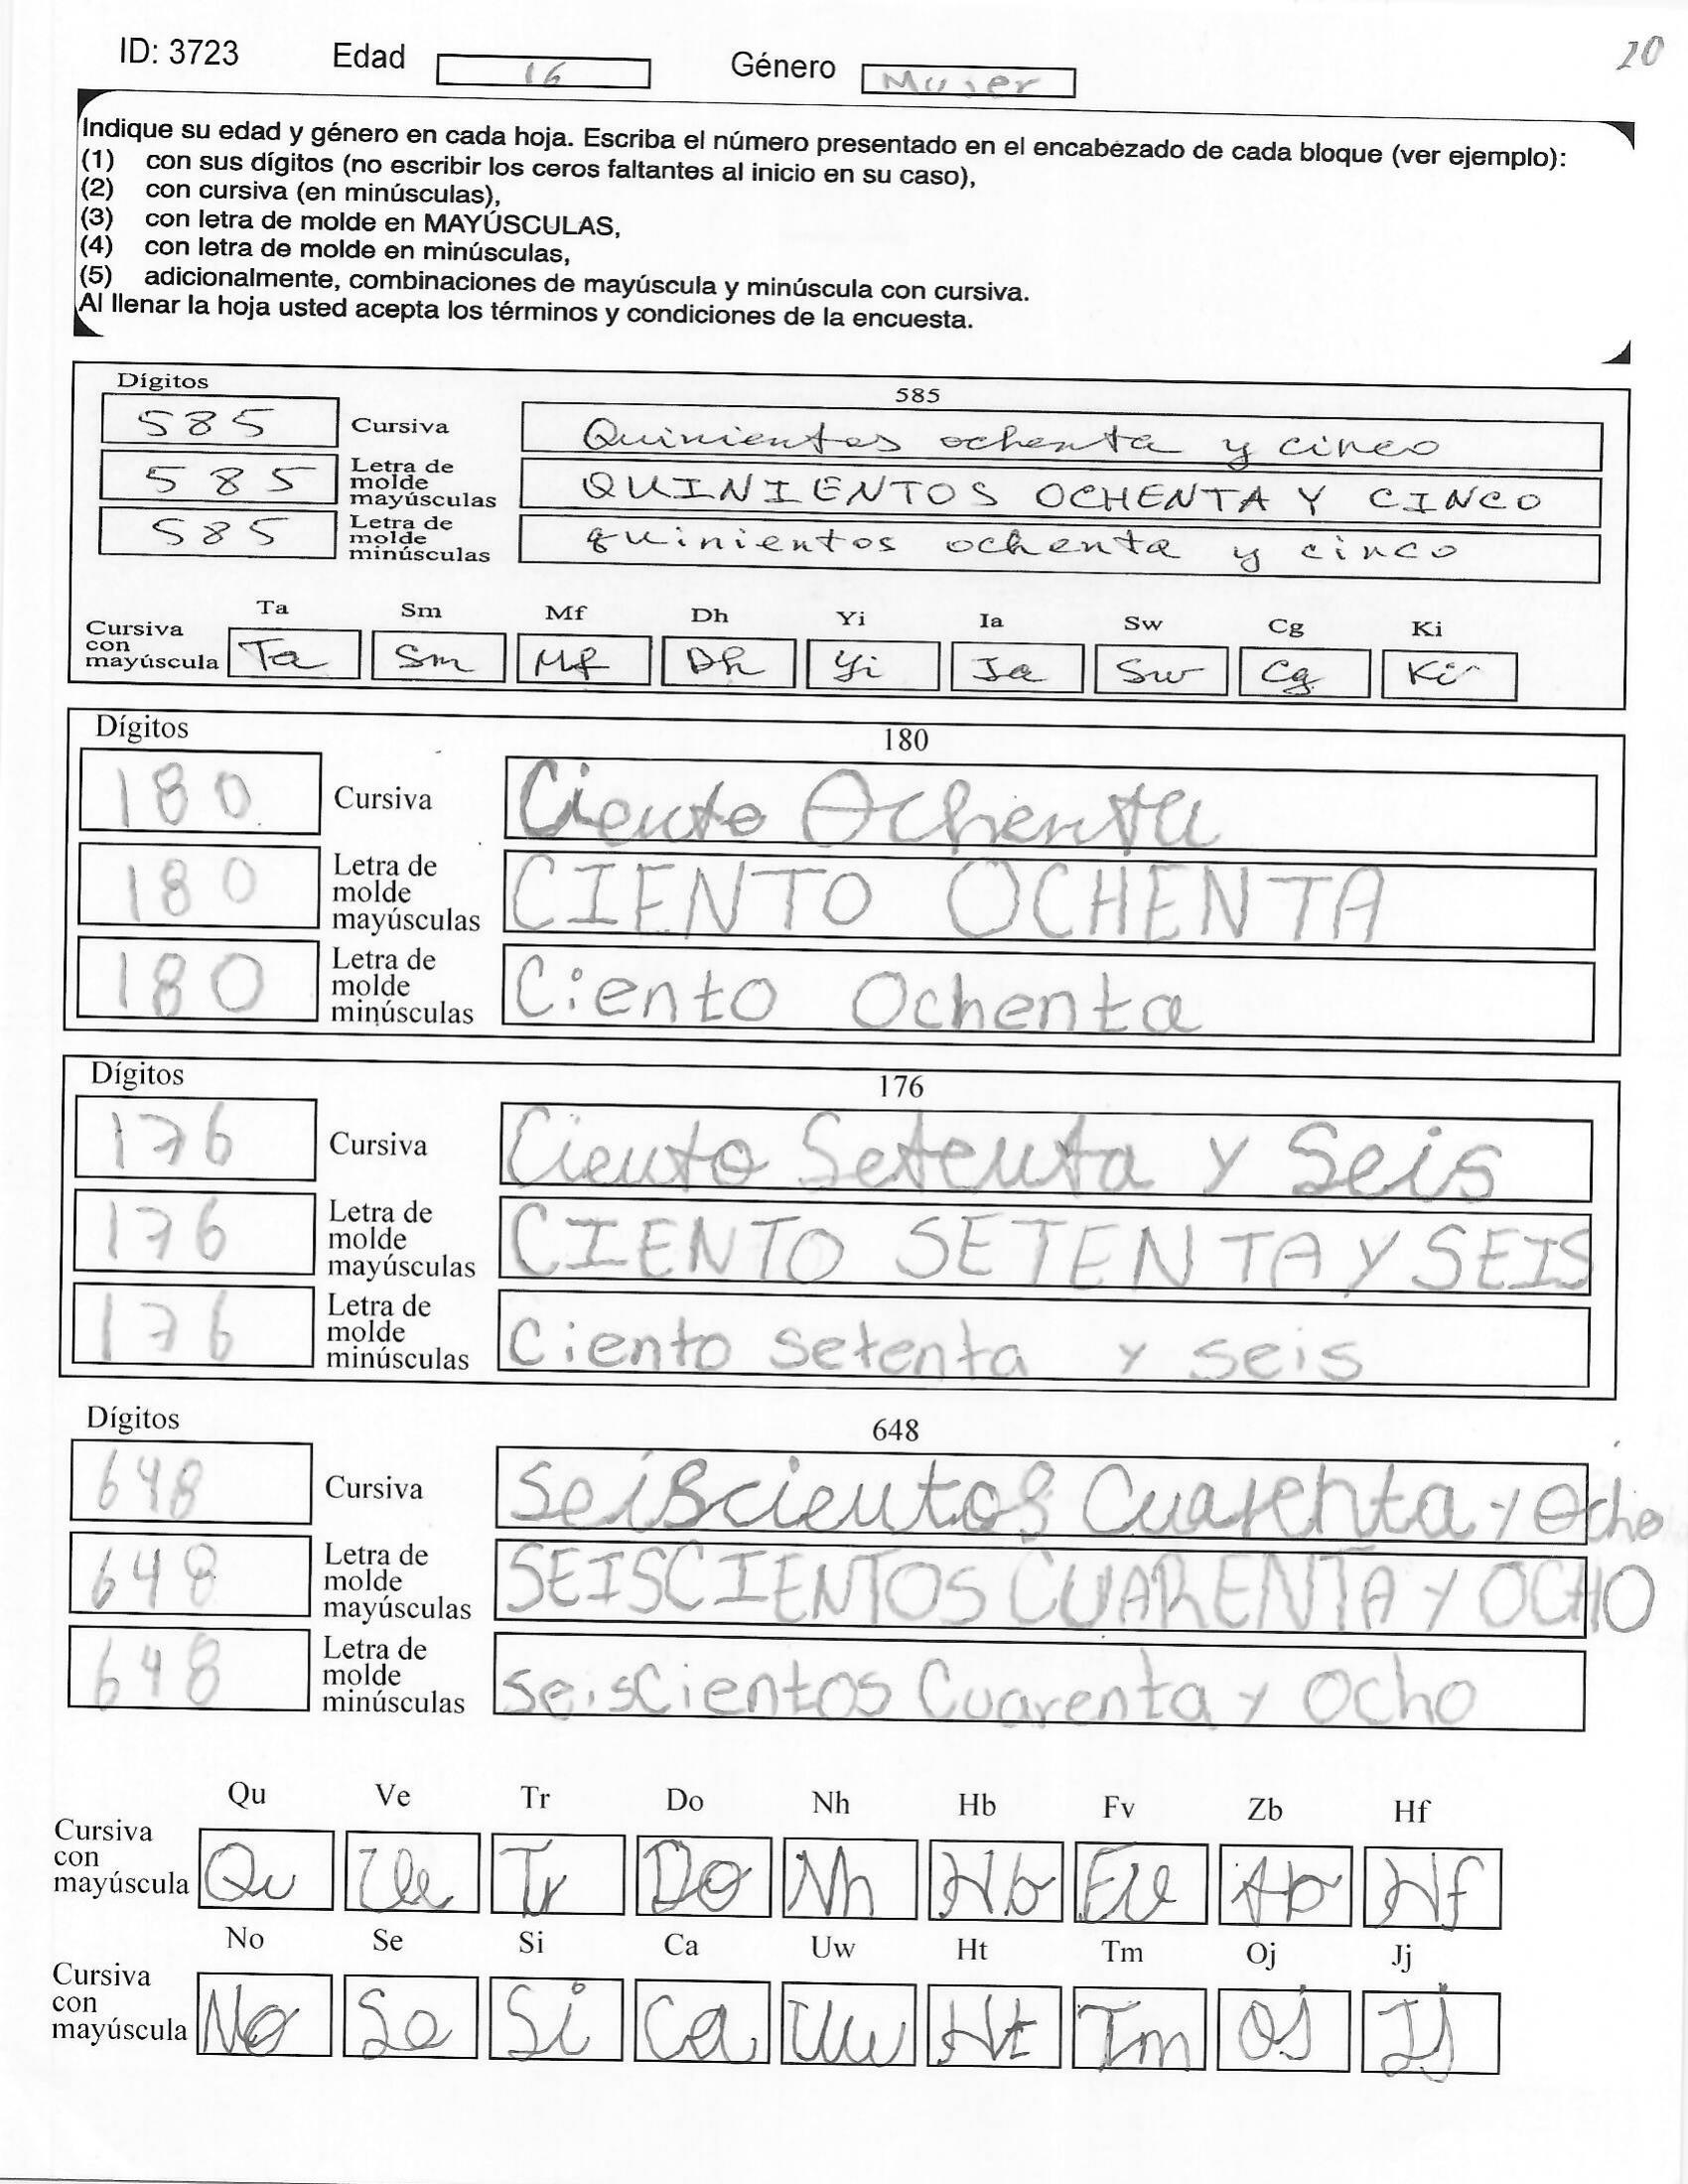 ID: 3723 Edad 16 Género Mujer 20
Indique su edad y género en cada hoja. Escriba el número presentado en el encabezado de cada bloque (ver ejemplo):
(1) con sus dígitos (no escribir los ceros faltantes al inicio en su caso),
(2) con cursiva (en minúsculas),
(3) con letra de molde en MAYÚSCULAS,
(4) con letra de molde en minúsculas,
(5) adicionalmente, combinaciones de mayúscula y minúscula con cursiva.
Al llenar la hoja usted acepta los términos y condiciones de la encuesta.
Dígitos 585
585 Cursiva Quinientos ochenta y cinco
585 Letra de molde mayúsculas QUINIENTOS OCHENTA Y CINCO
585 Letra de molde minúsculas quinientos ochenta y cinco
Ta Sm Mf Dh Yi Ia Sw Cg Ki
Cursiva con mayúscula Ta Sm Mf Dh Yi Ia Sw Cg Ki
Dígitos 180
180 Cursiva Ciento Ochenta
180 Letra de molde mayúsculas CIENTO OCHENTA
180 Letra de molde minúsculas Ciento Ochenta
Dígitos 176
176 Cursiva Ciento Setenta y Seis
176 Letra de molde mayúsculas CIENTO SETENTA Y SEIS
176 Letra de molde minúsculas Ciento setenta y seis
Dígitos 648
648 Cursiva Seiscientos Cuarenta y Ocho
648 Letra de molde mayúsculas SEISCIENTOS CUARENTA Y OCHO
648 Letra de molde minúsculas SeisCientos Cuarenta y Ocho
Qu Ve Tr Do Nh Hb Fv Zb Hf
Cursiva con mayúscula Qu Ve Tr Do Nh Hb Fv Hf
No Se Si Ca Uw Ht Tm Oj Jj
Cursiva con mayúscula No Se Si Ca Uw Ht Tm Oj Jj